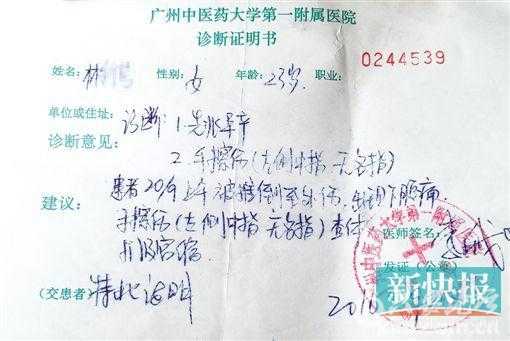 广州中医药大学第一附属医院
诊断证明书
姓名:林 性别:女 年龄:23岁 职业:
0244539
单位或住址:
诊断意见:
诊断:1.先兆早产
2.手擦伤(左侧中指、无名指)
建议:
患者20/9上午被推倒至外伤,出现下腹痛
手擦伤(左侧中指、无名指)查体
宫缩
医师签名:
发证(公章)
(交患者)特此证明
2016
新快报